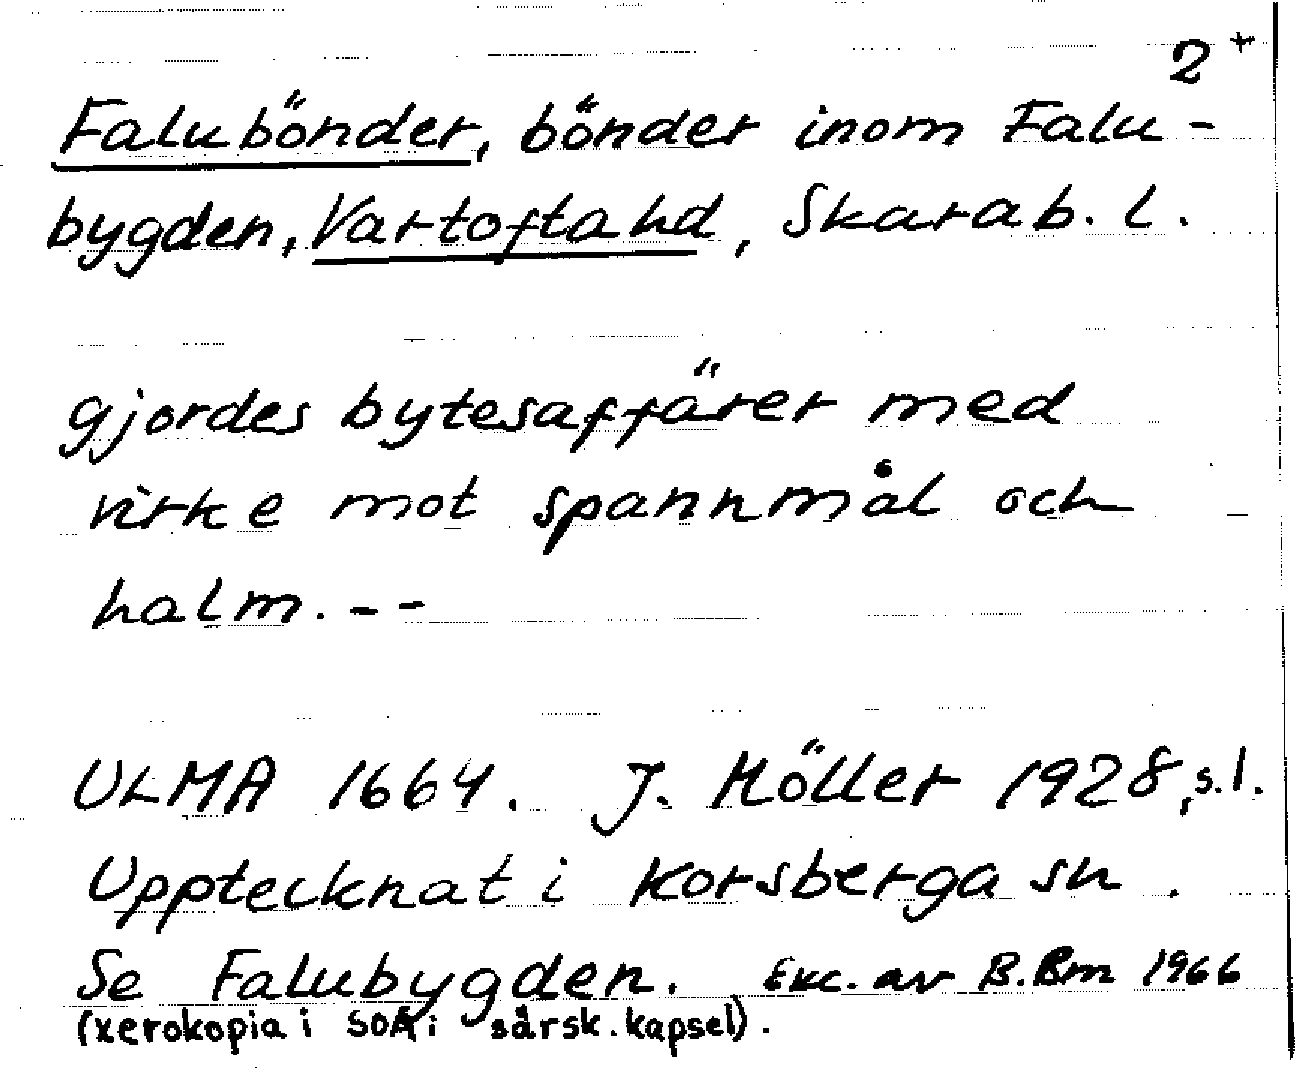 2 +
Falubönder, bönder inom Falu-
bygden, Vartofta hd, Skarab. l.
gjordes bytesaffärer med
virke mot spannmål och
halm. - -
ULMA 1664. J. Möller 1928, s. 1.
Upptecknat i Korsberga sn.
Se Falubygden. Exc. av B.Bm 1966
(xerokopia i SOA i särsk. kapsel).